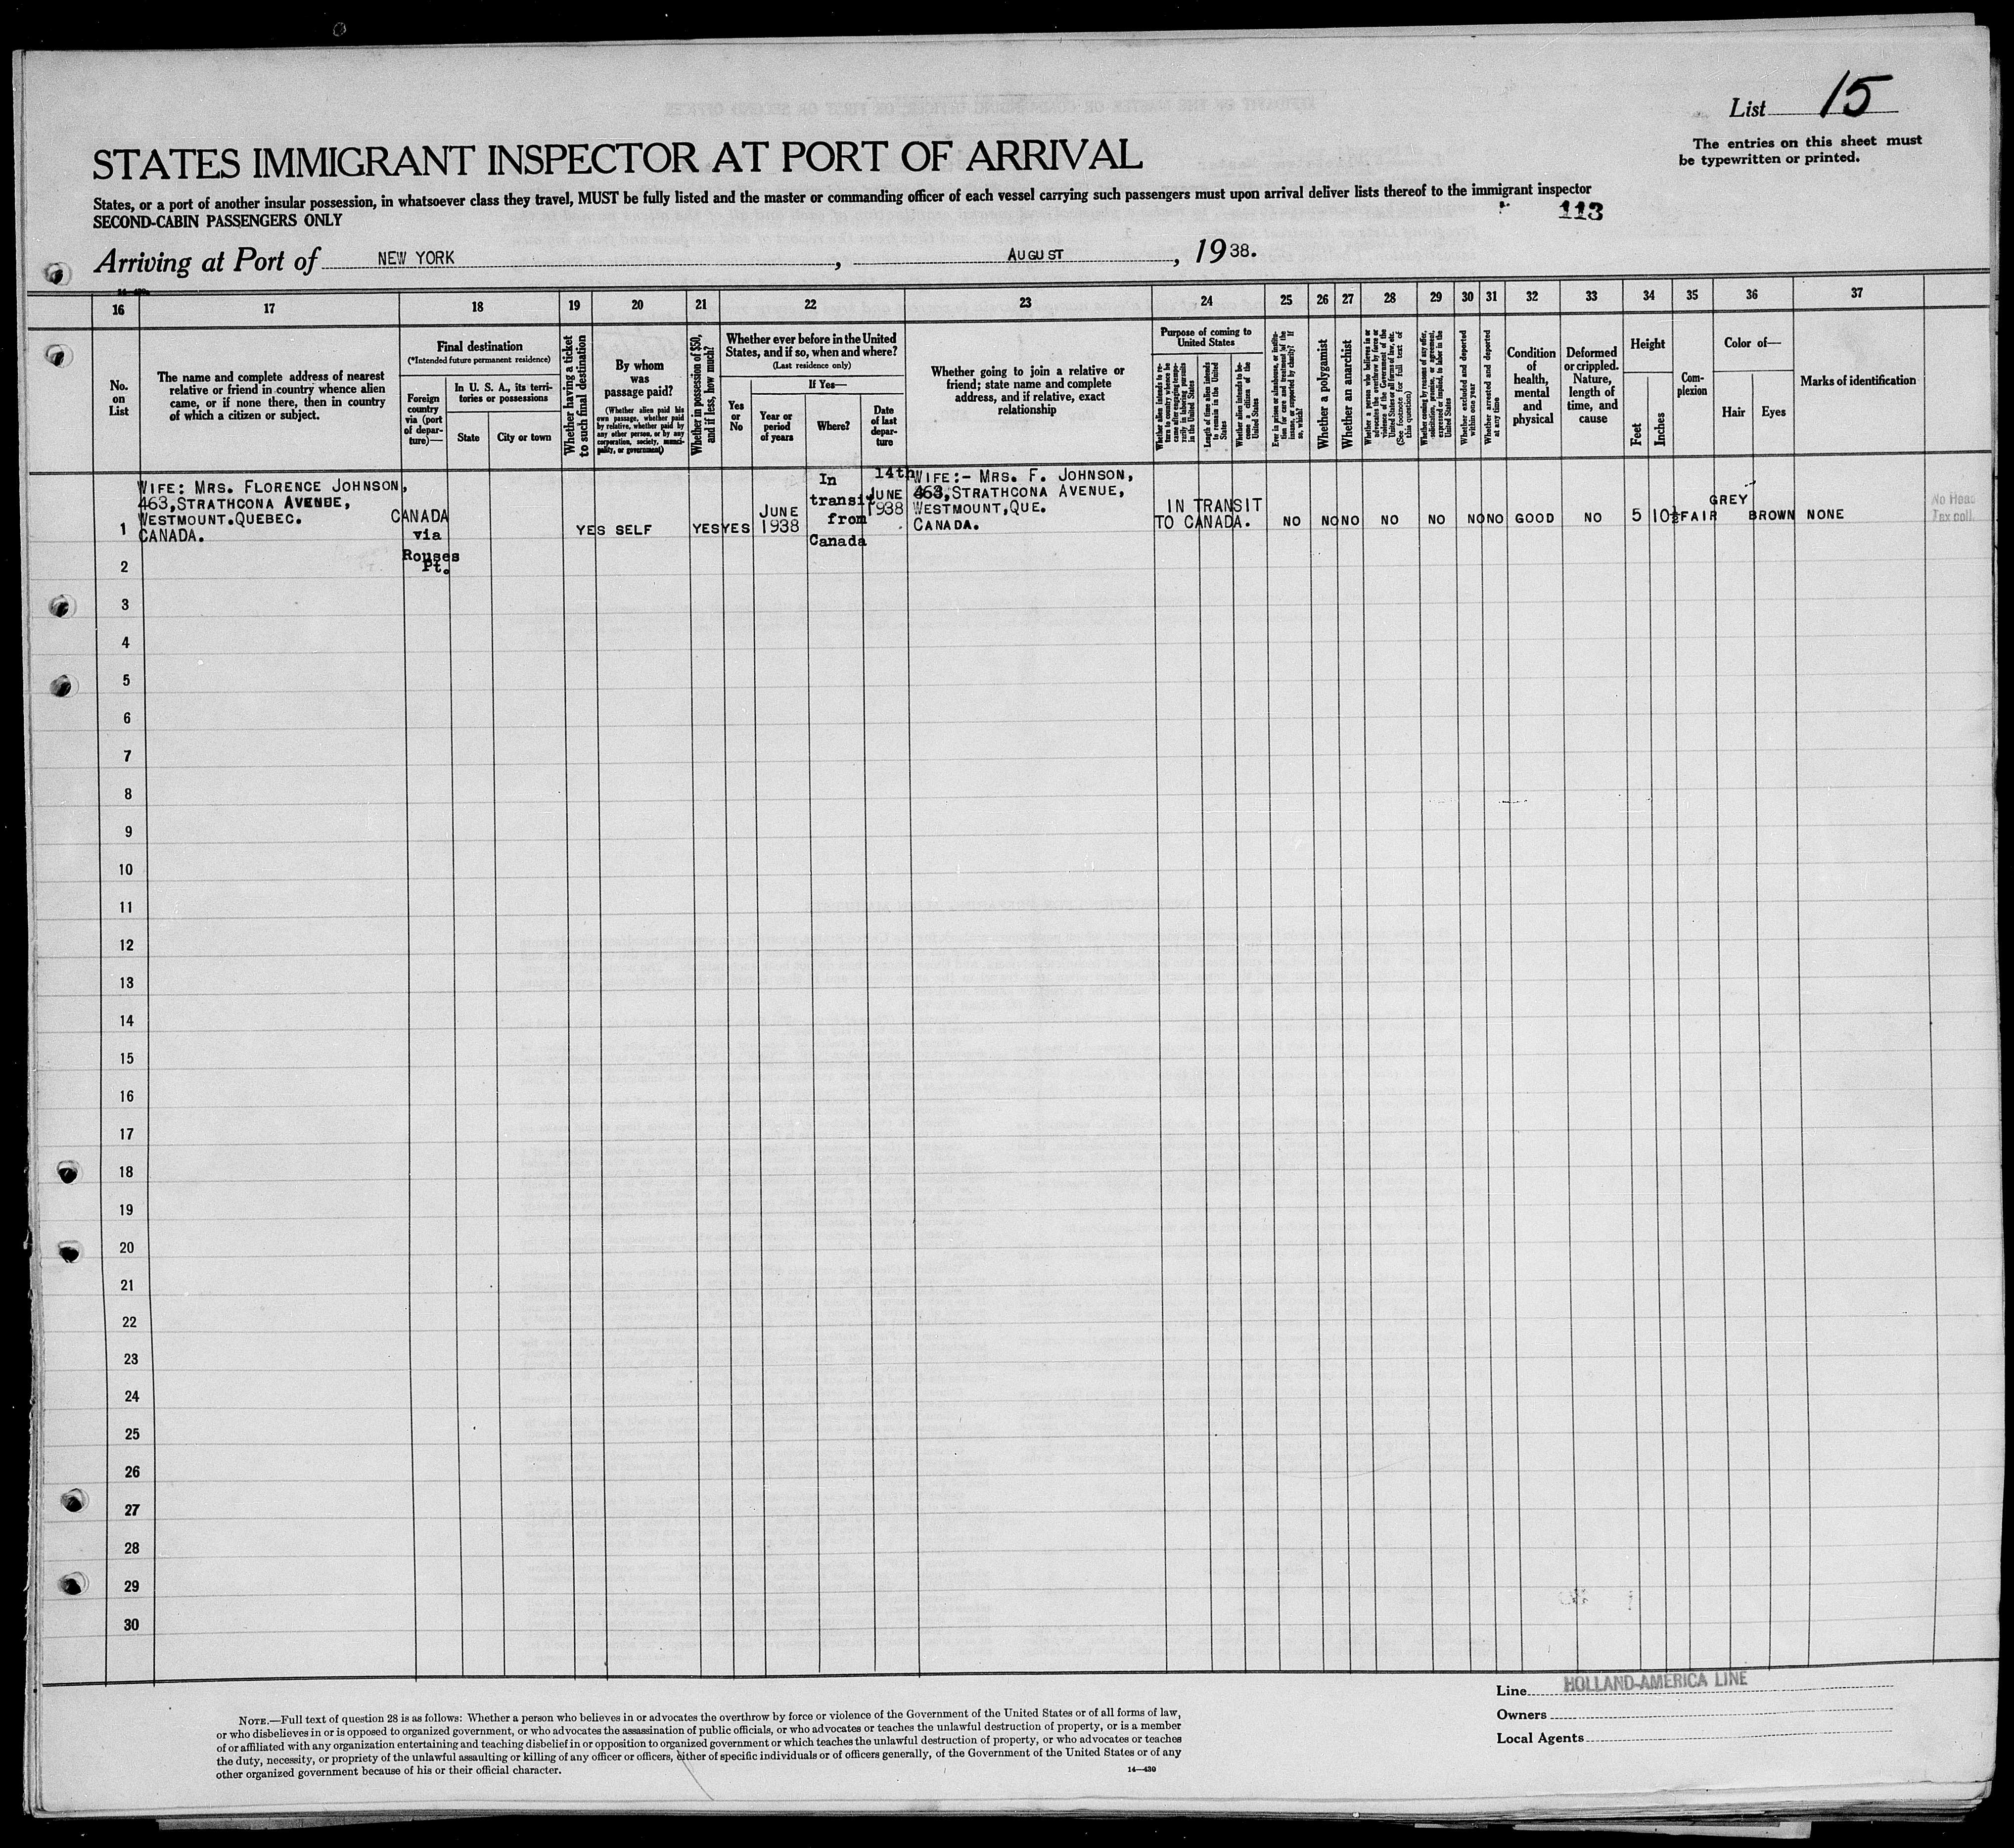 List 15
The entries on this sheet must
be typewritten or printed.
STATES IMMIGRANT INSPECTOR AT PORT OF ARRIVAL
States, or a port of another insular possession, in whatsoever class they travel, MUST be fully listed and the master or commanding officer of each vessel carrying such passengers must upon arrival deliver lists thereof to the immigrant inspector
SECOND-CABIN PASSENGERS ONLY
113
Arriving at Port of NEW YORK, AUGUST, 1938.
16 17 18 19 20 21 22 23 24 25 26 27 28 29 30 31 32 33 34 35 36 37
No.
on
List
The name and complete address of nearest
relative or friend in country whence alien
came, or if none there, then in country
of which a citizen or subject.
Final destination
(*Intended future permanent residence)
Foreign
country
via (port
of depar-
ture)—
In U. S. A., its terri-
tories or possessions
State
City or town
Whether having a ticket
to such final destination
By whom
was
passage paid?
(Whether alien paid his
own passage, whether paid
by relative, whether paid by
any other person, or by any
corporation, society, munici-
pality, or government)
Whether in possession of $50,
and if less, how much?
Whether ever before in the United
States, and if so, when and where?
(Last residence only)
Yes
or
No
If Yes—
Year or
period
of years
Where?
Date
of last
depar-
ture
Whether going to join a relative or
friend; state name and complete
address, and if relative, exact
relationship
Purpose of coming to
United States
Whether alien intends to re-
turn to country whence he
came after engaging tempo-
rarily in laboring pursuits
in the United States
Length of time alien intends
to remain in the United
States
Whether alien intends to be-
come a citizen of the
United States
Ever in prison or almshouse, or institu-
tion for care and treatment of the
insane, or supported by charity? If
so, which?
Whether a polygamist
Whether an anarchist
Whether a person who believes in or
advocates the overthrow by force or
violence of the Government of the
United States or all forms of law, etc.
(See footnote for full text of
this question)
Whether coming by reasons of any offer,
solicitation, promise, or agreement,
expressed or implied, to labor in the
United States
Whether excluded and deported
within one year
Whether arrested and deported
at any time
Condition
of
health,
mental
and
physical
Deformed
or crippled.
Nature,
length of
time, and
cause
Height
Feet
Inches
Com-
plexion
Color of—
Hair
Eyes
Marks of identification
1
WIFE: MRS. FLORENCE JOHNSON,
463, STRATHCONA AVENUE,
WESTMOUNT. QUEBEC.
CANADA.
CANADA
via
Rouses
Pt.
YES
SELF
YES
YES
JUNE
1938
In
transit
from
Canada
14th
JUNE
1938
WIFE:- MRS. F. JOHNSON,
463, STRATHCONA AVENUE,
WESTMOUNT, QUE.
CANADA.
IN TRANSIT
TO CANADA.
NO
NO
NO
NO
NO
NO
NO
GOOD
NO
5
10½
FAIR
GREY
BROWN
NONE
No Head
Tax coll.
2
3
4
5
6
7
8
9
10
11
12
13
14
15
16
17
18
19
20
21
22
23
24
25
26
27
28
29
30
Line HOLLAND-AMERICA LINE
Owners
Local Agents
NOTE.—Full text of question 28 is as follows: Whether a person who believes in or advocates the overthrow by force or violence of the Government of the United States or of all forms of law,
or who disbelieves in or is opposed to organized government, or who advocates the assassination of public officials, or who advocates or teaches the unlawful destruction of property, or is a member
of or affiliated with any organization entertaining and teaching disbelief in or opposition to organized government or which teaches the unlawful destruction of property, or who advocates or teaches
the duty, necessity, or propriety of the unlawful assaulting or killing of any officer or officers, either of specific individuals or of officers generally, of the Government of the United States or of any
other organized government because of his or their official character.
14—430